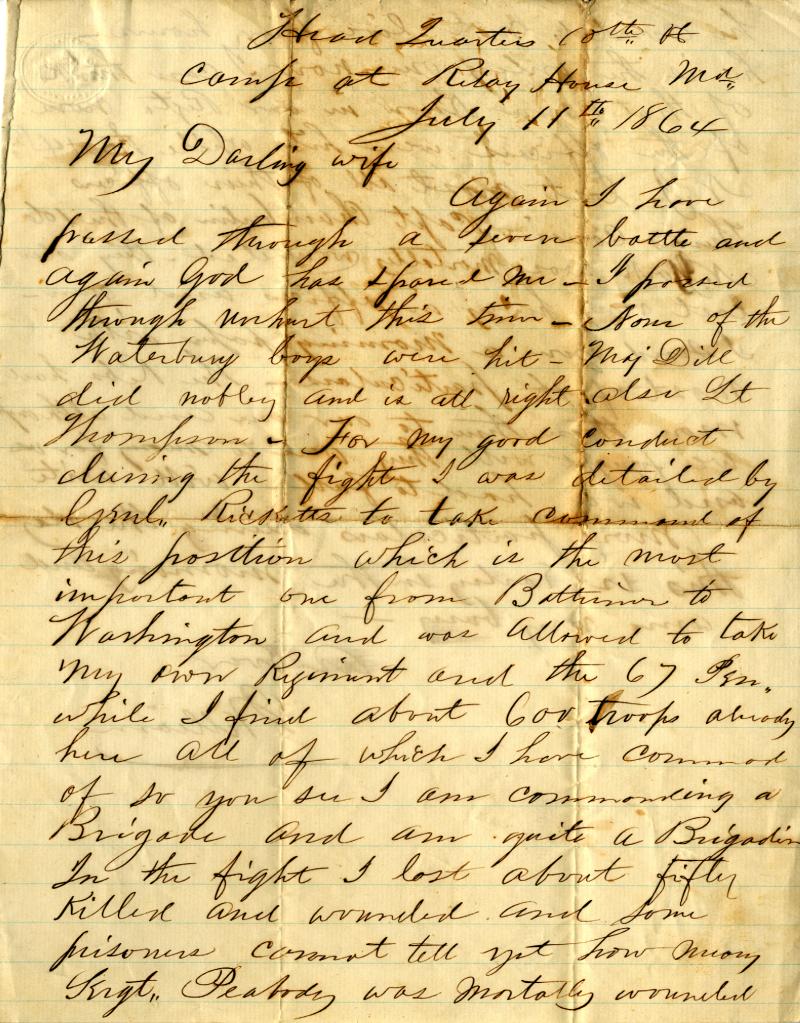 Head Quarters 10th Vt
Camp at Relay House Md
July 11th 1864
My Darling wife
Again I have
passed through a sever battle and
again God has spared me - I passed
through unhurt this time - None of the
Waterbury boys were hit - Maj Dill
did nobley and is all right also Lt
Thompson - For my good conduct
during the fight I was detailed by
Genl. Ricketts to take command of
this position which is the most
important one from Baltimore to
Washington and was allowed to take
my own Regiment and the 67 Pen.
while I find about 600 troops already
here all of which I have command
of so you see I am commanding a
Brigade and am quite a Brigadier
In the fight I lost about fifty
Killed and wounded and some
prisoners cannot tell yet how many
Sergt. Peabody was mortally wounded